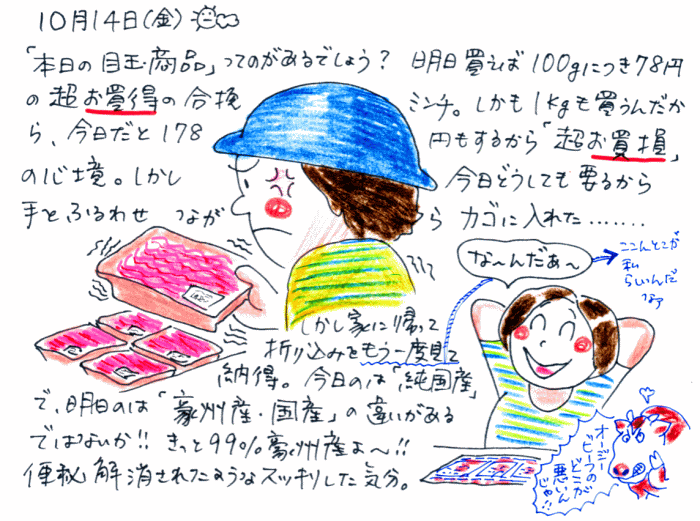 10月14日(金)
「本日の目玉商品」ってのがあるでしょう? 明日買えば100gにつき78円
の超お買得の合挽ミンチ。しかも1kgも買うんだか
ら、今日だと178円もするから「超お買損」
の心境。しかし今日どうしても要るから
手をふるわせつながらカゴに入れた.......
な〜んだぁ〜
ここんとこが
私
らしいんだ
なァ
しかし家に帰って
折り込みをもう一度見て
納得。今日のは「純国産」
で、明日のは「豪州産・国産」の違いがある
ではないか!! きっと99%豪州産よ〜!!
便秘解消されたようなスッキリした気分。
オージー
ビーフの
どこが
悪いん
じゃ!!